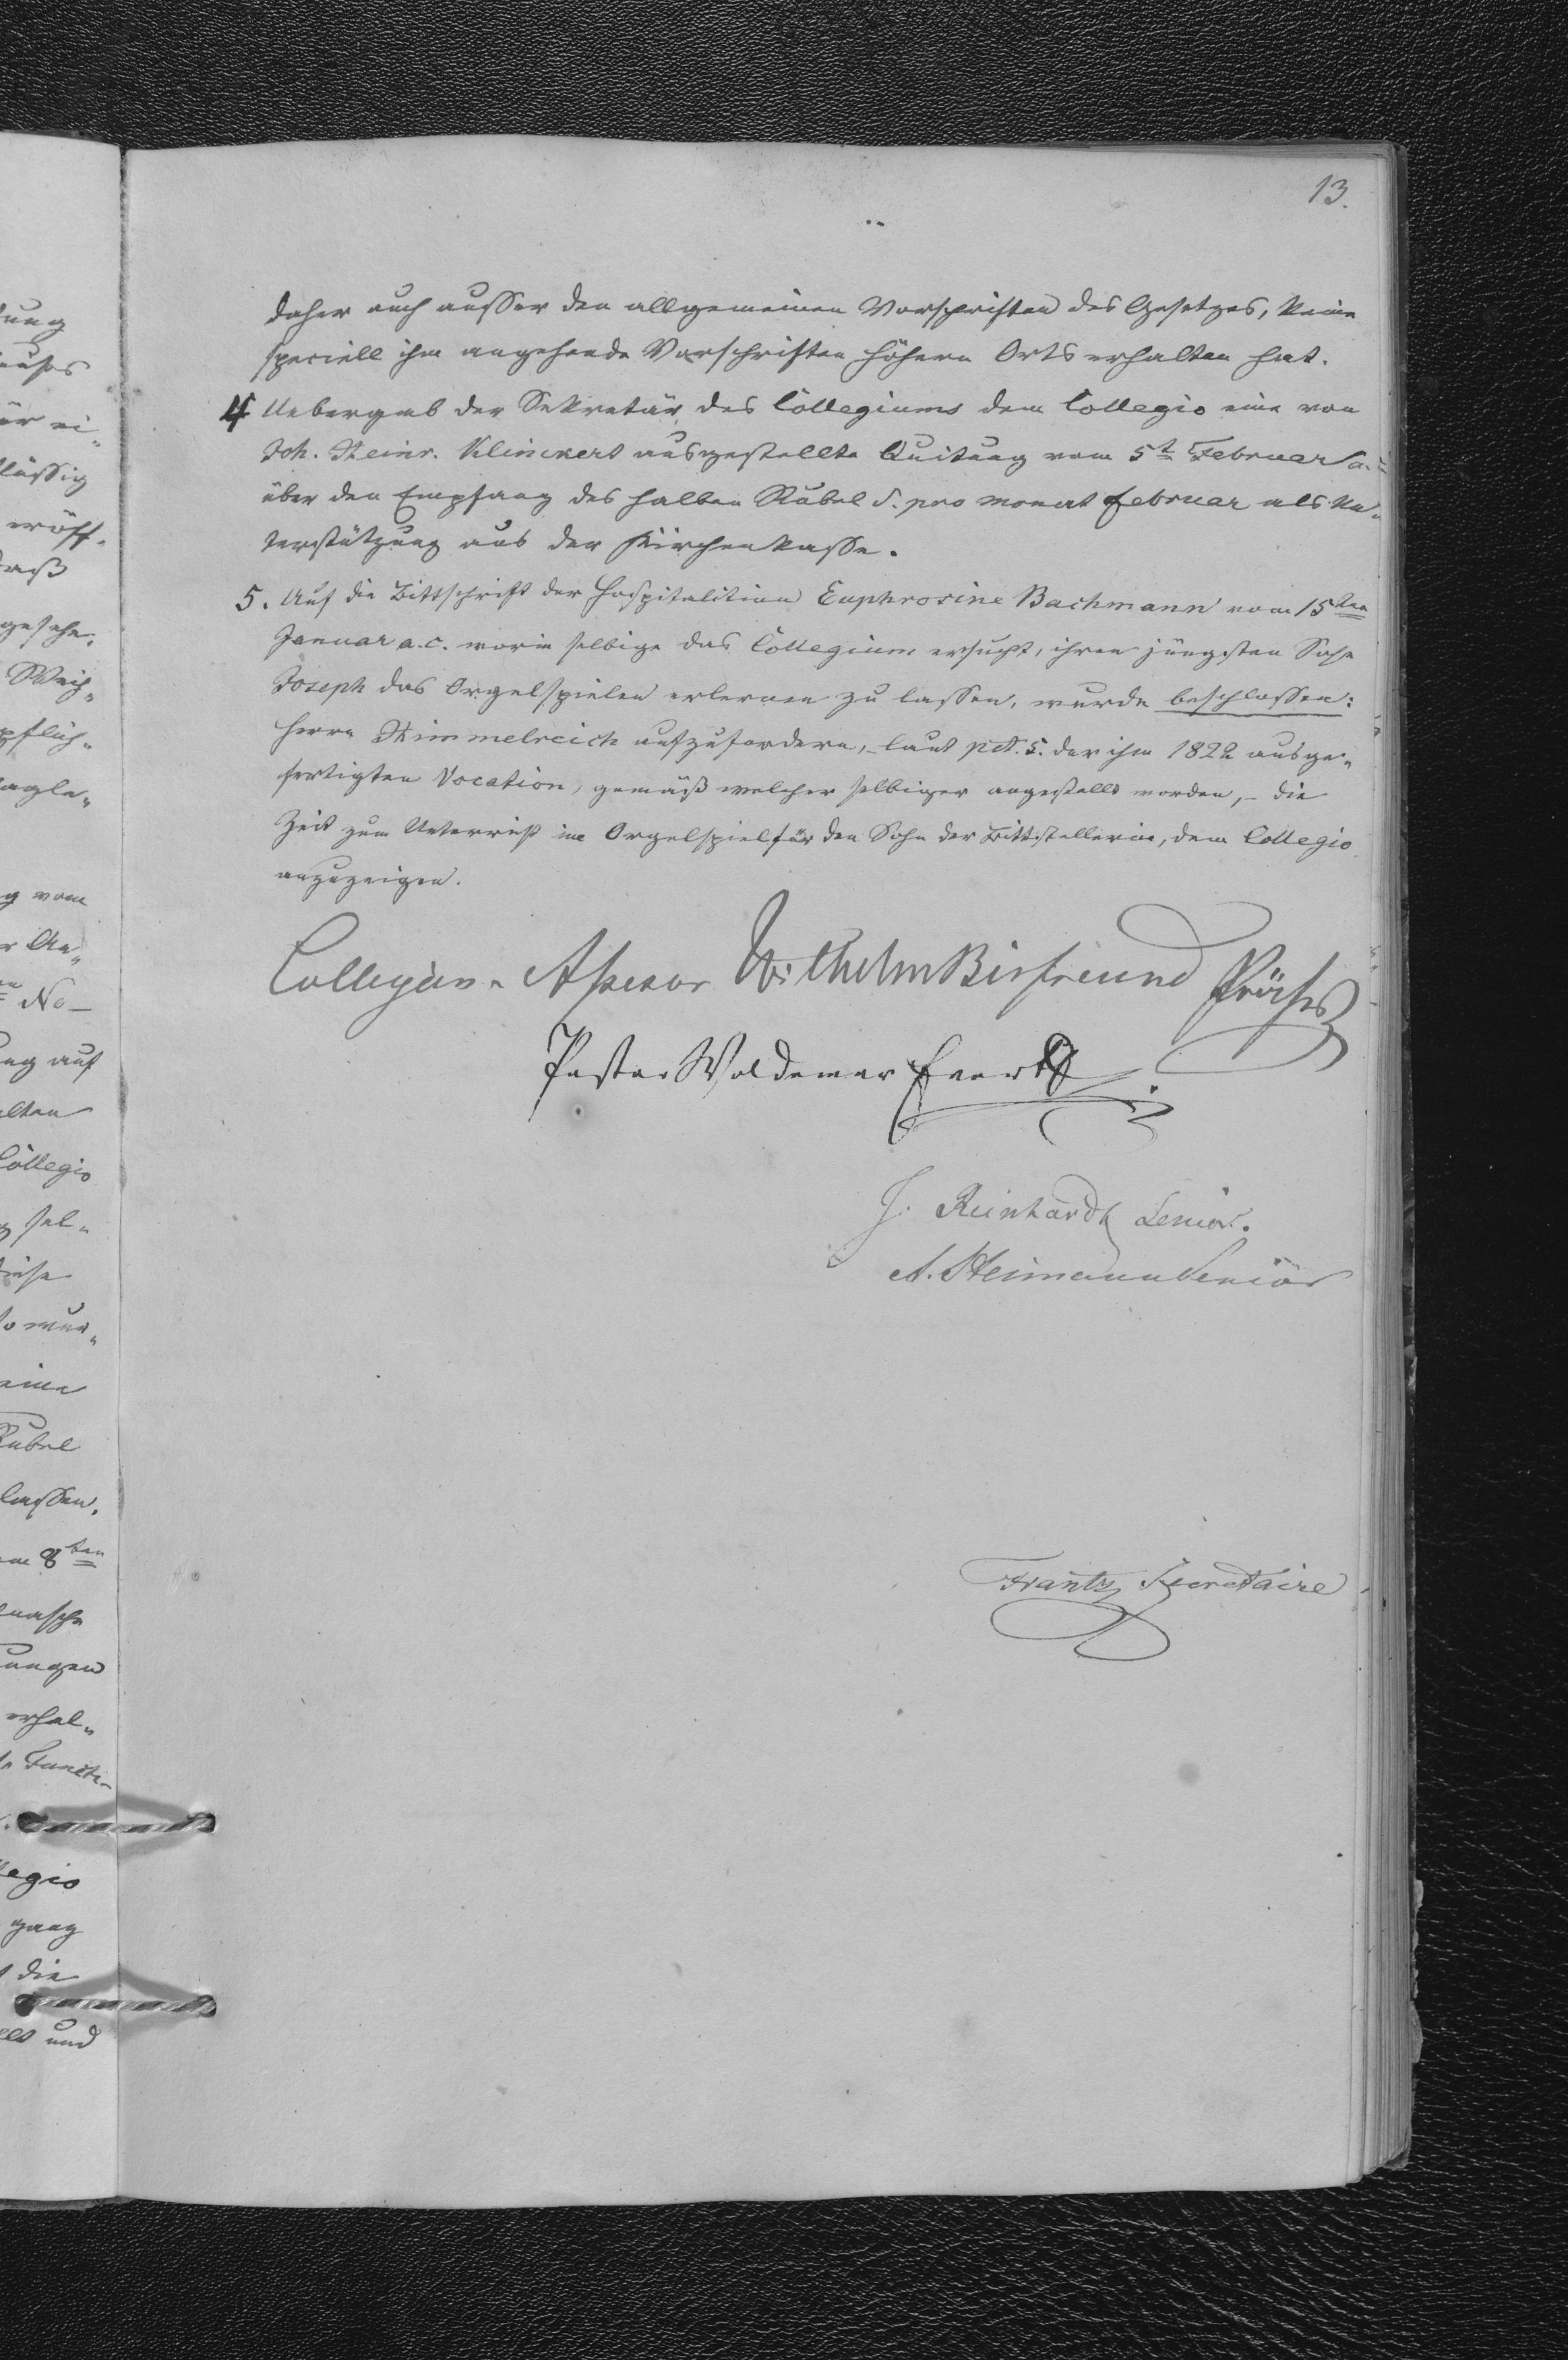 13.
daher auch ausser den allgemeinen Vorschriften des Gesetzes, keine
speciell ihm angehende Vorschriften höhern Orts erhalten hat.
4 Uebergab der Sekretär des Collegiums dem Collegio eine von
Joh. Heinr. Klinckert ausgestellte Quitung vom 5t Februar a.
über den Empfang des halben Rubel S. pro monat Februar als Un-
terstützung aus der Kirchenkasse.
5. Auf die Bittschrift der Hospitalitinn Euphrosine Bachmann vom 15ten
Januar a.c. worin selbige das Collegium ersucht, ihren jüngsten Sohn
Joseph das Orgelspielen erlernen zu lassen, wurde beschlossen:
Herrn Himmelreich aufzufordern, - laut pct. 5. der ihm 1822 ausge-
fertigten Vocation, gemäß welcher selbiger angestellt worden, - die
Zeit zum Unterricht im Orgelspiel für den Sohn der Bittstellerin, dem Collegio
anzuzeigen.
Collegien-Assessor Wilhelm Birfreund Präses
Pastor Woldemar Everth
J. Reinhardt Senior.
A. Heimann Senior
Frantz Secretaire
ung
ür ei-
lässig
eröff-
daß
gesehe-
pflich-
g vom
r An-
No-
ung auf
alten
Collegio
sel-
diese
so wur-
eine
Rubel
lassen.
8ten
ungen
erhal-
Functi-
legio
gang
die
und